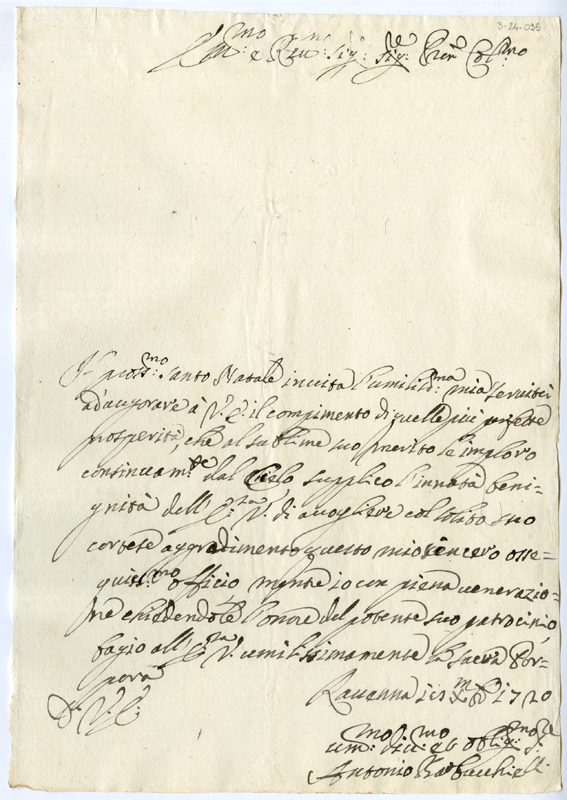 3-24-035
Em:mo e Reu:mo Sig: Sig: Pron Col:mo
Il pross:mo Santo Natale invita l'umiliss:ma mia servitù
ad augurare à V. E. il compimento di quelle più perfette
prosperità, che al sublime suo merito le imploro
continuam:te dal Cielo supplico l'innata beni=
gnità dell' E:za V: di accogliere col solito suo
cortese aggradimento questo mio sincero osse=
quios:mo officio mentre io con piena venerazio=
ne chiedendole l'onore del potente suo patrocinio
bagio all' E:za V. umilissimamente la Sacra Por=
pora
Ravenna X:bre 1720
D: V: E:
um:mo diu:mo ed obblig:mo
Antonio